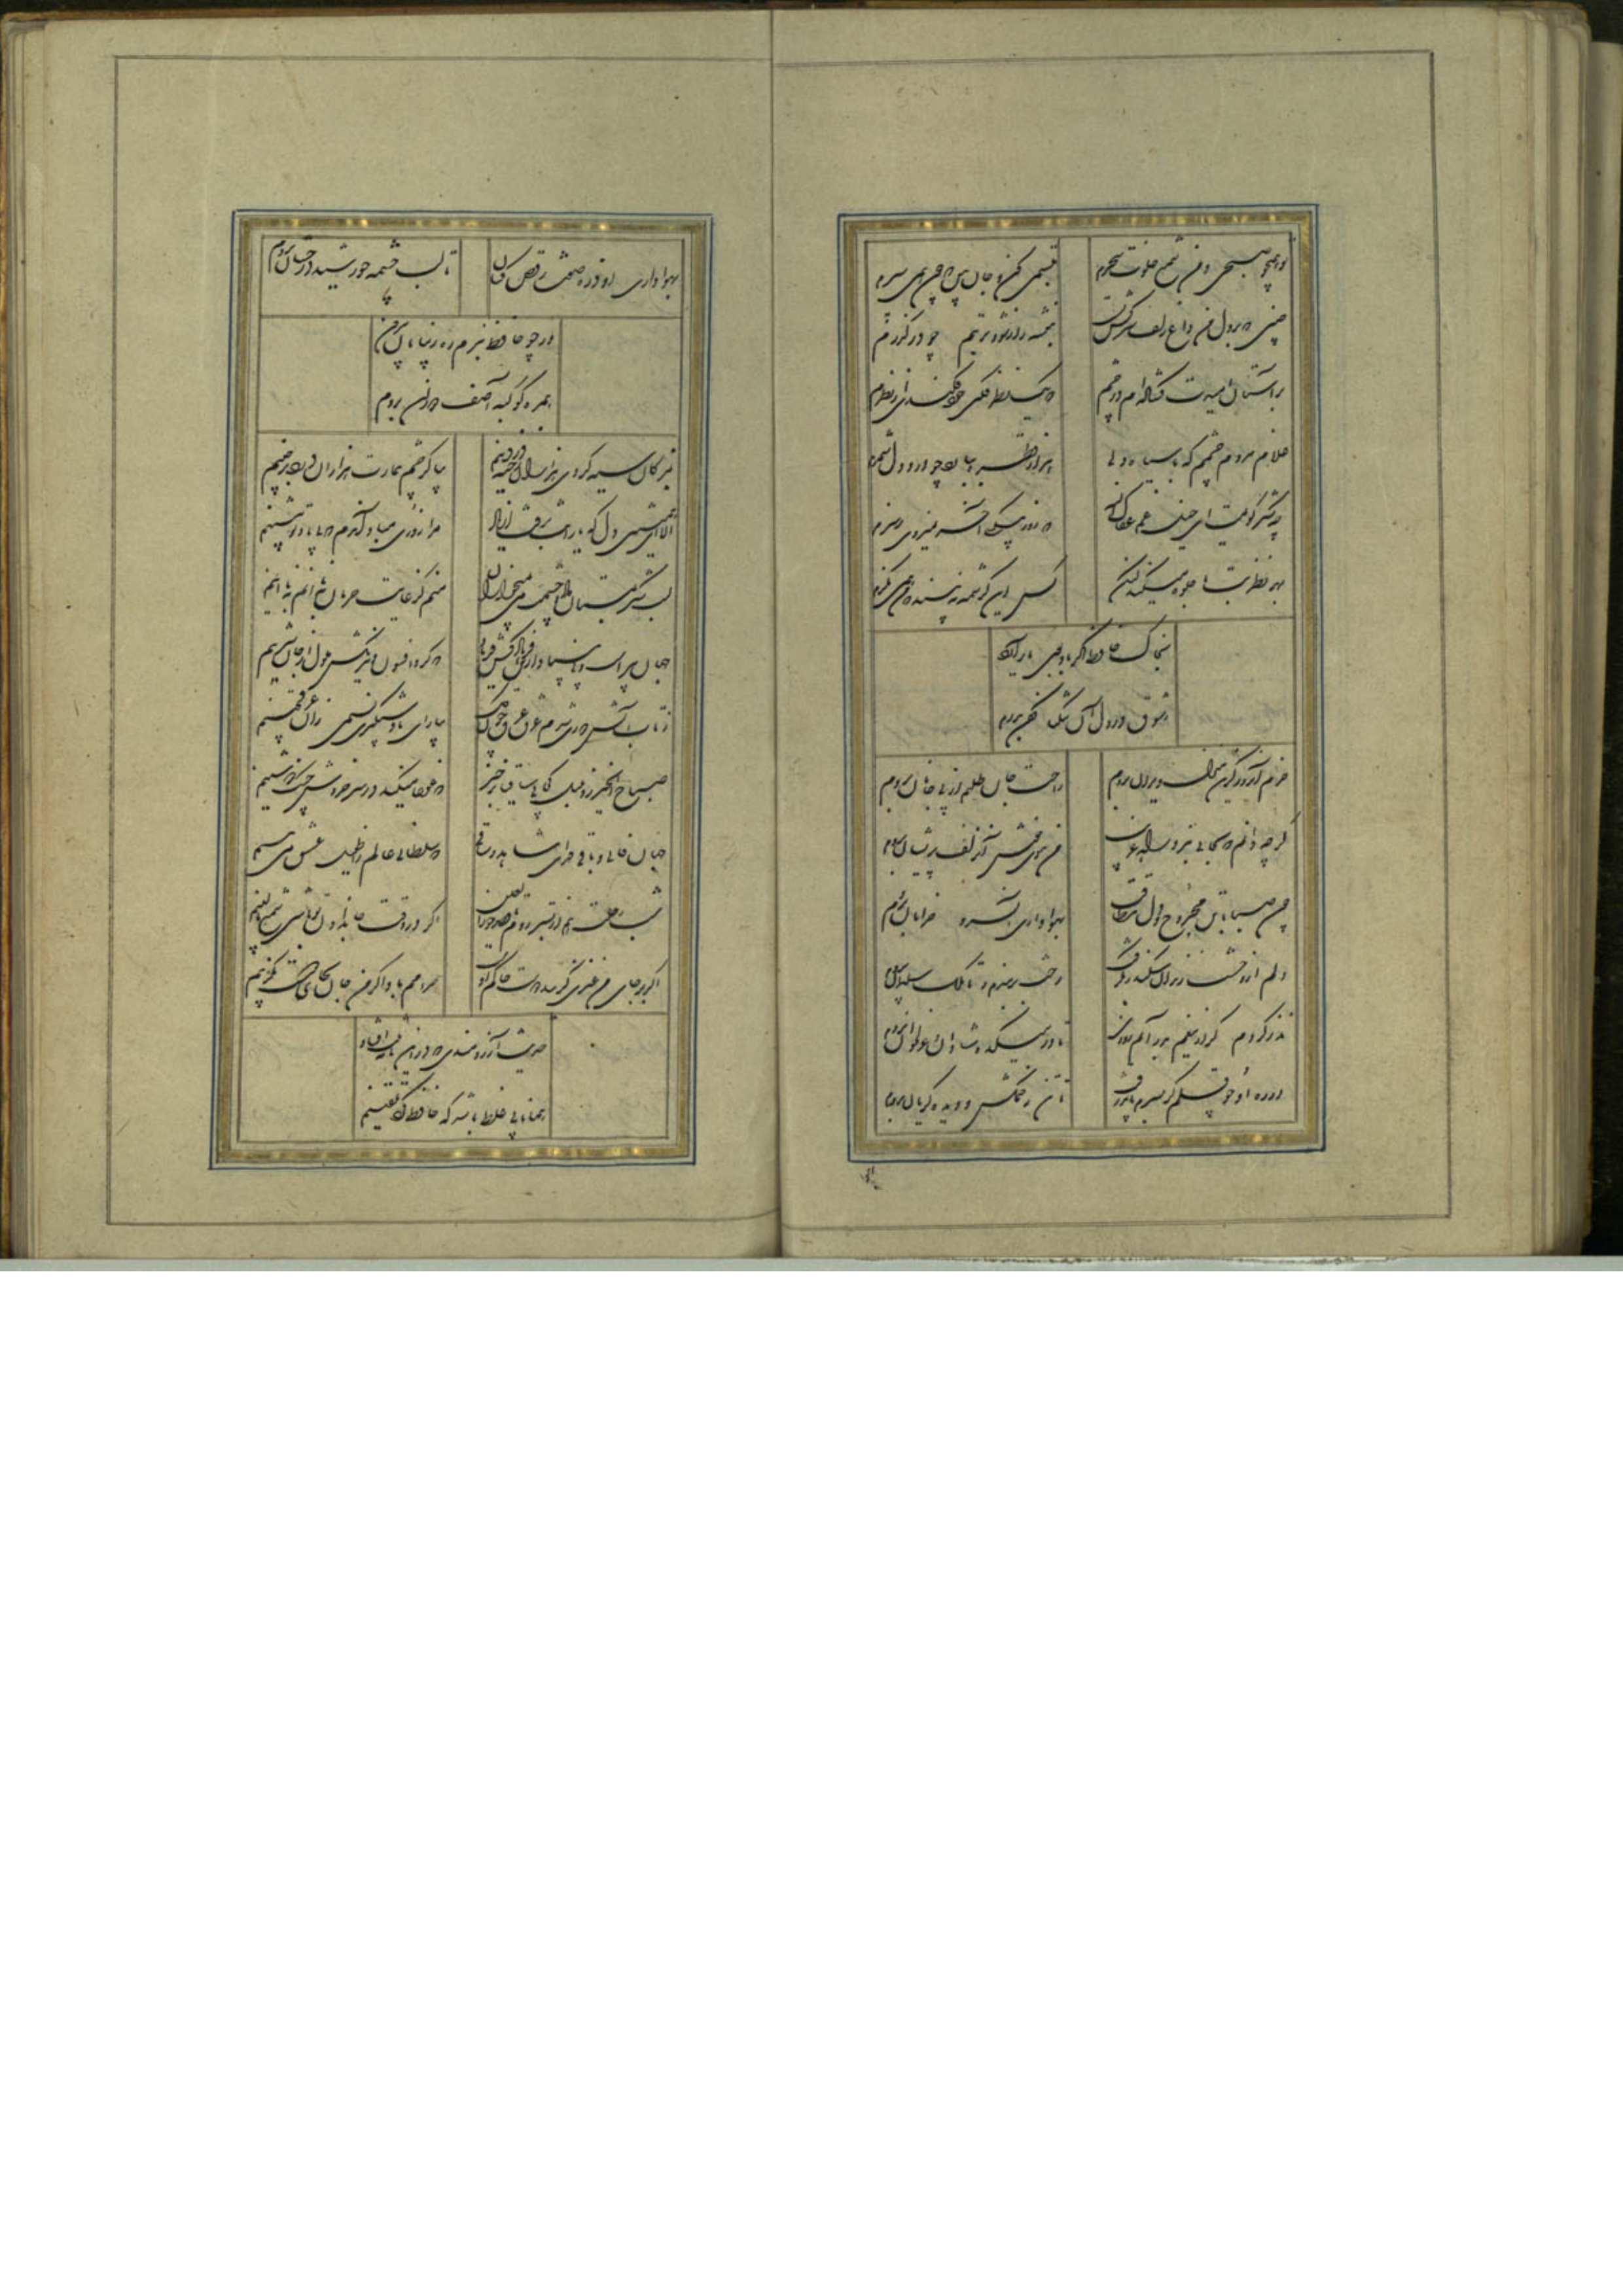 تو همچو صبحی و من شمع خلوت سحرم
تبسمی کن و جان بین که چون همی سپرم
چنین که بر دل من داغ زلف سرکش تست
بنفشه زار شود تربتم چو درگذرم
بر آستان امیدت گشاده ام در چشم
که یک نظر فکنی خود فکندی از نظرم
غلام مردم چشمم که با سیاه دلی
هزار قطره ببارد چو درد دل شمرم
چه شکر گویمت ای خیل غم عفاک الله
که روز بیکسی آخر نمیروی ز سرم
بهر نظر بت ما جلوه میکند لیکن
کس این کرشمه نبیند که من همی نگرم
بخاک حافظ اگر یار بگذرد
ز شوق در دل آن تنگنا کفن بدرم
خرم آنروز کزین منزل ویران بروم
راحت جان طلبم از پی جانان بروم
گرچه دانم که بجایی نبرد راه غریب
من ببوی خوش آن زلف پریشان بروم
چون صبا با تن مجروح و دل بیطاقت
بهواداری آن سرو خرامان بروم
دلم از وحشت زندان سکندر بگرفت
رخت بربندم و تا ملک سلیمان بروم
نذر کردم گر ازین غم بدر آیم روزی
تا در میکده شادان و غزلخوان بروم
در ره او چو قلم گر بسرم باید رفت
با تن زخمکش و دیده گریان بروم
بهواداری او ذره صفت رقص کنان
تا لب چشمه خورشید درخشان بروم
ور چو حافظ نبرم ره ز بیابان بیرون
همره کوکبه آصف دوران بروم
بمژگان سیه کردی هزاران رخنه در دینم
بیا کز چشم بیمارت هزاران درد برچینم
الا ای همنشین دل که یارانت برفت از یاد
مرا روزی مباد آندم که بی یاد تو بنشینم
جهان پیر است و بی بنیاد ازین فرهادکش فریاد
که کرد افسون و نیرنگش ملول از جان شیرینم
ز تاب آتش دوری شدم غرق عرق چون گل
بیار ای باد شبگیری نسیمی زان عرق چینم
صباح الخیر زد بلبل کجایی ساقیا برخیز
که غوغا میکند در سر خروش چنگ دوشینم
جهان فانی و باقی فدای شاهد و ساقی
که سلطانی عالم را طفیل عشق می بینم
شب رحلت هم از بستر روم تا قصر حورالعین
اگر در وقت جان دادن تو باشی شمع بالینم
اگر بر جای من غیری گزیند دوست حاکم اوست
حرامم باد اگر من جان بجای دوست بگزینم
حدیث آرزومندی که در این نامه ثبت افتاد
همانا بی غلط باشد که حافظ داد تلقینم